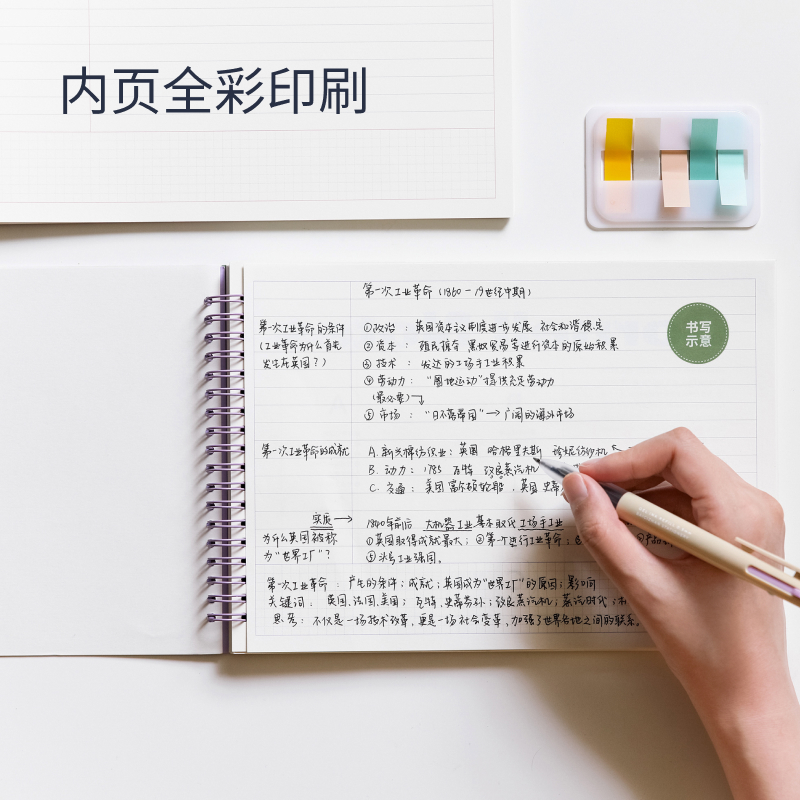 内页全彩印刷
书写
示意
第一次工业革命(1860一19世纪中期)
第一次工业革命的条件
(工业革命为什么首先
发生在英国?)
①政治:英国资本主义制度进一步发展 社会和谐稳定
②资本:殖民掠夺 黑奴贸易等进行资本的原始积累
③技术:发达的工场手工业积累
④劳动力:"圈地运动"提供充足劳动力
(最必要)
⑤市场:"日不落帝国"→广阔的海外市场
第一次工业革命的成就
A.新兴棉纺织业:英国 哈格里夫斯 珍妮纺纱机
B.动力:1785 瓦特 改良蒸汽机
C.交通:美国富尔顿轮船,英国史蒂
实质→
1840年前后 大机器工业基本取代工场手工业
为什么英国被称
为"世界工厂"?
①英国取得成就最大;②第一个进行工业革命;
⑤头号工业强国。
第一次工业革命:产生的条件;成就;英国成为"世界工厂"的原因;影响
关键词:英国、法国、美国;瓦特、史蒂芬孙;改良蒸汽机;蒸汽时代;
思考:不仅是一场技术改革,更是一场社会变革,加强了世界各地之间的联系。